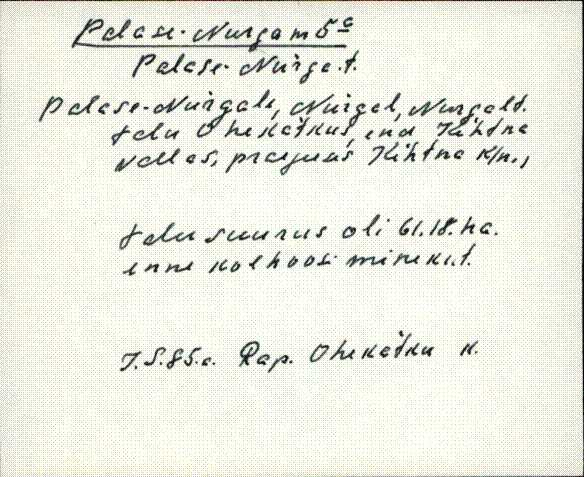 Palase-Nurga m 5c
Palase-Nurga.t.
Palase-Nurgale, Nurgal, Nurgalt.
talu Ohekatkus, end Kehtna
vallas, praegus Kehtna k/n.,
talu suurus oli 61.18.ha.
enne kolhoosi minekut.
J.S.85.a. Rap. Ohekatku k.